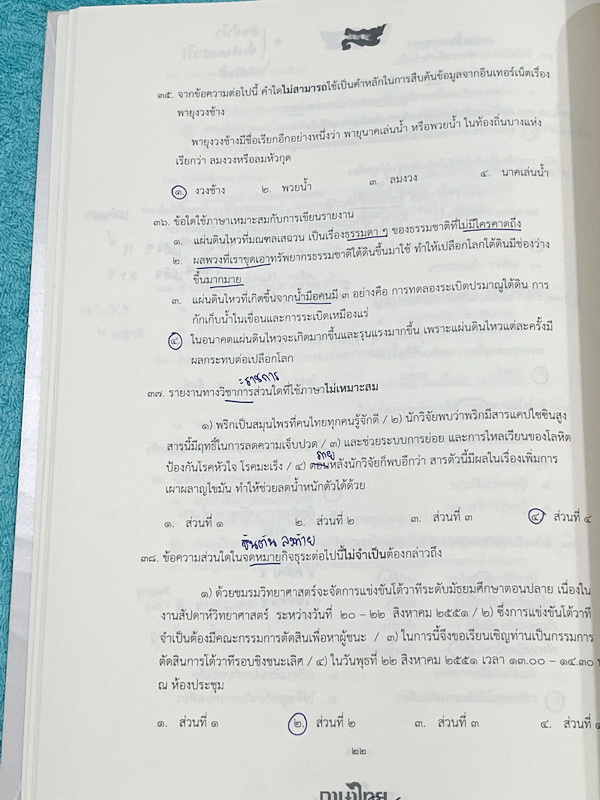 ๓๕. จากข้อความต่อไปนี้ คำใดไม่สามารถใช้เป็นคำหลักในการสืบค้นข้อมูลจากอินเทอร์เน็ตเรื่อง
พายุงวงช้าง
พายุงวงช้างมีชื่อเรียกอีกอย่างหนึ่งว่า พายุนาคเล่นน้ำ หรือพวยน้ำ ในท้องถิ่นบางแห่ง
เรียกว่า ลมงวงหรือลมหัวกุด
๑. งวงช้าง ๒. พวยน้ำ ๓. ลมงวง ๔. นาคเล่นน้ำ
๓๖. ข้อใดใช้ภาษาเหมาะสมกับการเขียนรายงาน
๑. แผ่นดินไหวที่มณฑลเสฉวน เป็นเรื่องธรรมดา ๆ ของธรรมชาติที่ไม่มีใครคาดถึง
๒. ผลพวงที่เราขุดเอาทรัพยากรธรรมชาติใต้ดินขึ้นมาใช้ ทำให้เปลือกโลกใต้ดินมีช่องว่าง
ขึ้นมากมาย
๓. แผ่นดินไหวที่เกิดขึ้นจากน้ำมือคนมี ๓ อย่างคือ การทดลองระเบิดปรมาณูใต้ดิน การ
กักเก็บน้ำในเขื่อนและการระเบิดเหมืองแร่
๔. ในอนาคตแผ่นดินไหวจะเกิดมากขึ้นและรุนแรงมากขึ้น เพราะแผ่นดินไหวแต่ละครั้งมี
ผลกระทบต่อเปลือกโลก
ราชการ
๓๗. รายงานทางวิชาการส่วนใดที่ใช้ภาษาไม่เหมาะสม
๑) พริกเป็นสมุนไพรที่คนไทยทุกคนรู้จักดี / ๒) นักวิจัยพบว่าพริกมีสารแคปไซซินสูง
สารนี้มีฤทธิ์ในการลดความเจ็บปวด / ๓) และช่วยระบบการย่อย และการไหลเวียนของโลหิต
ป้องกันโรคหัวใจ โรคมะเร็ง / ๔) ตอนหลังนักวิจัยก็พบอีกว่า สารตัวนี้มีผลในเรื่องเพิ่มการ
เผาผลาญไขมัน ทำให้ช่วยลดน้ำหนักตัวได้ด้วย
๑. ส่วนที่ ๑ ๒. ส่วนที่ ๒ ๓. ส่วนที่ ๓ ๔. ส่วนที่ ๔
๓๘. ข้อความส่วนใดในจดหมายกิจธุระต่อไปนี้ไม่จำเป็นต้องกล่าวถึง
๑) ด้วยชมรมวิทยาศาสตร์จะจัดการแข่งขันโต้วาทีระดับมัธยมศึกษาตอนปลาย เนื่องใน
งานสัปดาห์วิทยาศาสตร์ ระหว่างวันที่ ๒๐ – ๒๒ สิงหาคม ๒๕๕๑ / ๒) ซึ่งการแข่งขันโต้วาที
จำเป็นต้องมีคณะกรรมการตัดสินเพื่อหาผู้ชนะ / ๓) ในการนี้จึงขอเรียนเชิญท่านเป็นกรรมการ
ตัดสินการโต้วาทีรอบชิงชนะเลิศ / ๔) ในวันพุธที่ ๒๒ สิงหาคม ๒๕๕๑ เวลา ๑๓.๐๐ – ๑๔.๓๐
ณ ห้องประชุม
๑. ส่วนที่ ๑ ๒. ส่วนที่ ๒ ๓. ส่วนที่ ๓ ๔. ส่วนที่
๒๒
ภาษาไทย